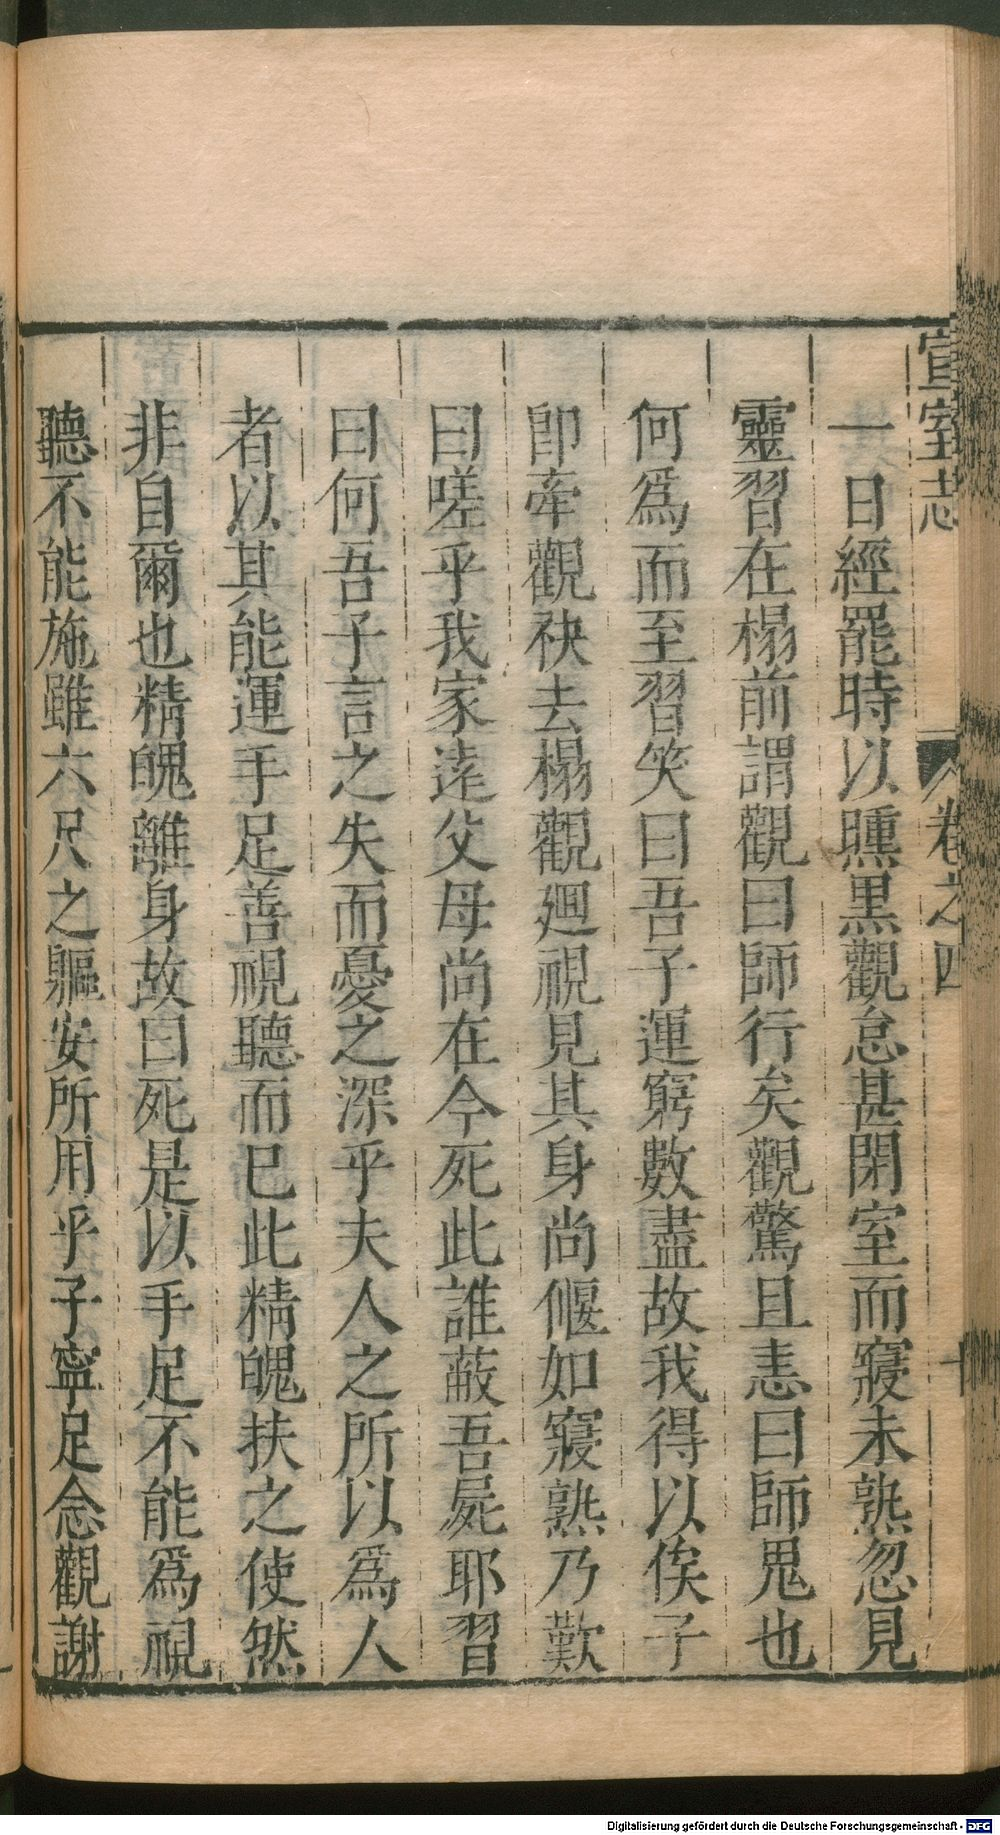 宣室志 卷之四 十
一日經罷時以曛黒觀怠甚閉室而寢未熟忽見
靈習在榻前謂觀曰師行矣觀驚且恚曰師鬼也
何爲而至習笑曰吾子運窮數盡故我得以俟子
卽牽觀袂去榻觀廻視見其身尚偃如寢熟乃歎
曰嗟乎我家遠父母尚在今死此誰蔽吾屍耶習
曰何吾子言之失而憂之深乎夫人之所以爲人
者以其能運手足善視聽而已此精魄扶之使然
非自爾也精魄離身故曰死是以手足不能爲視
聽不能施雖六尺之軀安所用乎子寧足念觀謝
Digitalisierung gefördert durch die Deutsche Forschungsgemeinschaft - DFG